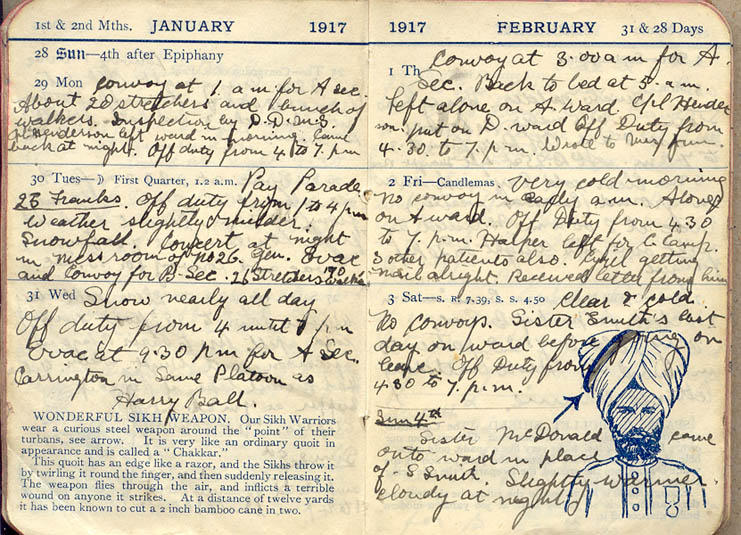 1st & 2nd Mths. JANUARY 1917
28 Sun—4th after Epiphany
29 Mon Convoy at 1 a.m. for A sec.
About 20 stretchers and bunch of
walkers. Inspection by D.D.M.S.
Henderson left ward in morning. Came
back at night. Off duty from 4 to 7. pm
30 Tues—☽ First Quarter, 1.2 a.m. Pay Parade
25 Franks. Off duty from 1 to 4 pm
Weather slightly milder.
Snowfall. Concert at night
in messroom of No 26. Gen. Evac
and Convoy for B-Sec. 26 Stretchers 170
31 Wed Snow nearly all day
Off duty from 4 until 7 pm
Evac at 9.30 pm for A Sec.
Carrington in Same Platoon as
Harry Ball.
WONDERFUL SIKH WEAPON. Our Sikh Warriors
wear a curious steel weapon around the "point" of their
turbans, see arrow. It is very like an ordinary quoit in
appearance and is called a "Chakkar."
This quoit has an edge like a razor, and the Sikhs throw it
by twirling it round the finger, and then suddenly releasing it.
The weapon flies through the air, and inflicts a terrible
wound on anyone it strikes. At a distance of twelve yards
it has been known to cut a 2 inch bamboo cane in two.
1917 FEBRUARY 31 & 28 Days
1 Th Convoy at 3.00 a m for A
Sec. Back to bed at 5. a.m.
Left alone on A. Ward. Cpl Hender
son. put on D. ward Off Duty from
4.30 to 7. p.m. Wrote to
2 Fri—Candlemas. Very cold morning
No convoy in early a.m. Alone
on A ward. Off Duty from 4.30
to 7. p.m. Harper left for C. Camp.
3 other patients also. Cyril getting
mail alright. Received letter from him
3 Sat—s. r. 7.39, s. s. 4.50 Clear & cold.
No convoys. Sister Smith's last
day on ward before going on
leave. Off Duty from
4.30 to 7. p.m.
Sun 4th
Sister McDonald came
onto ward in place
of S Smith. Slightly warmer.
cloudy at night